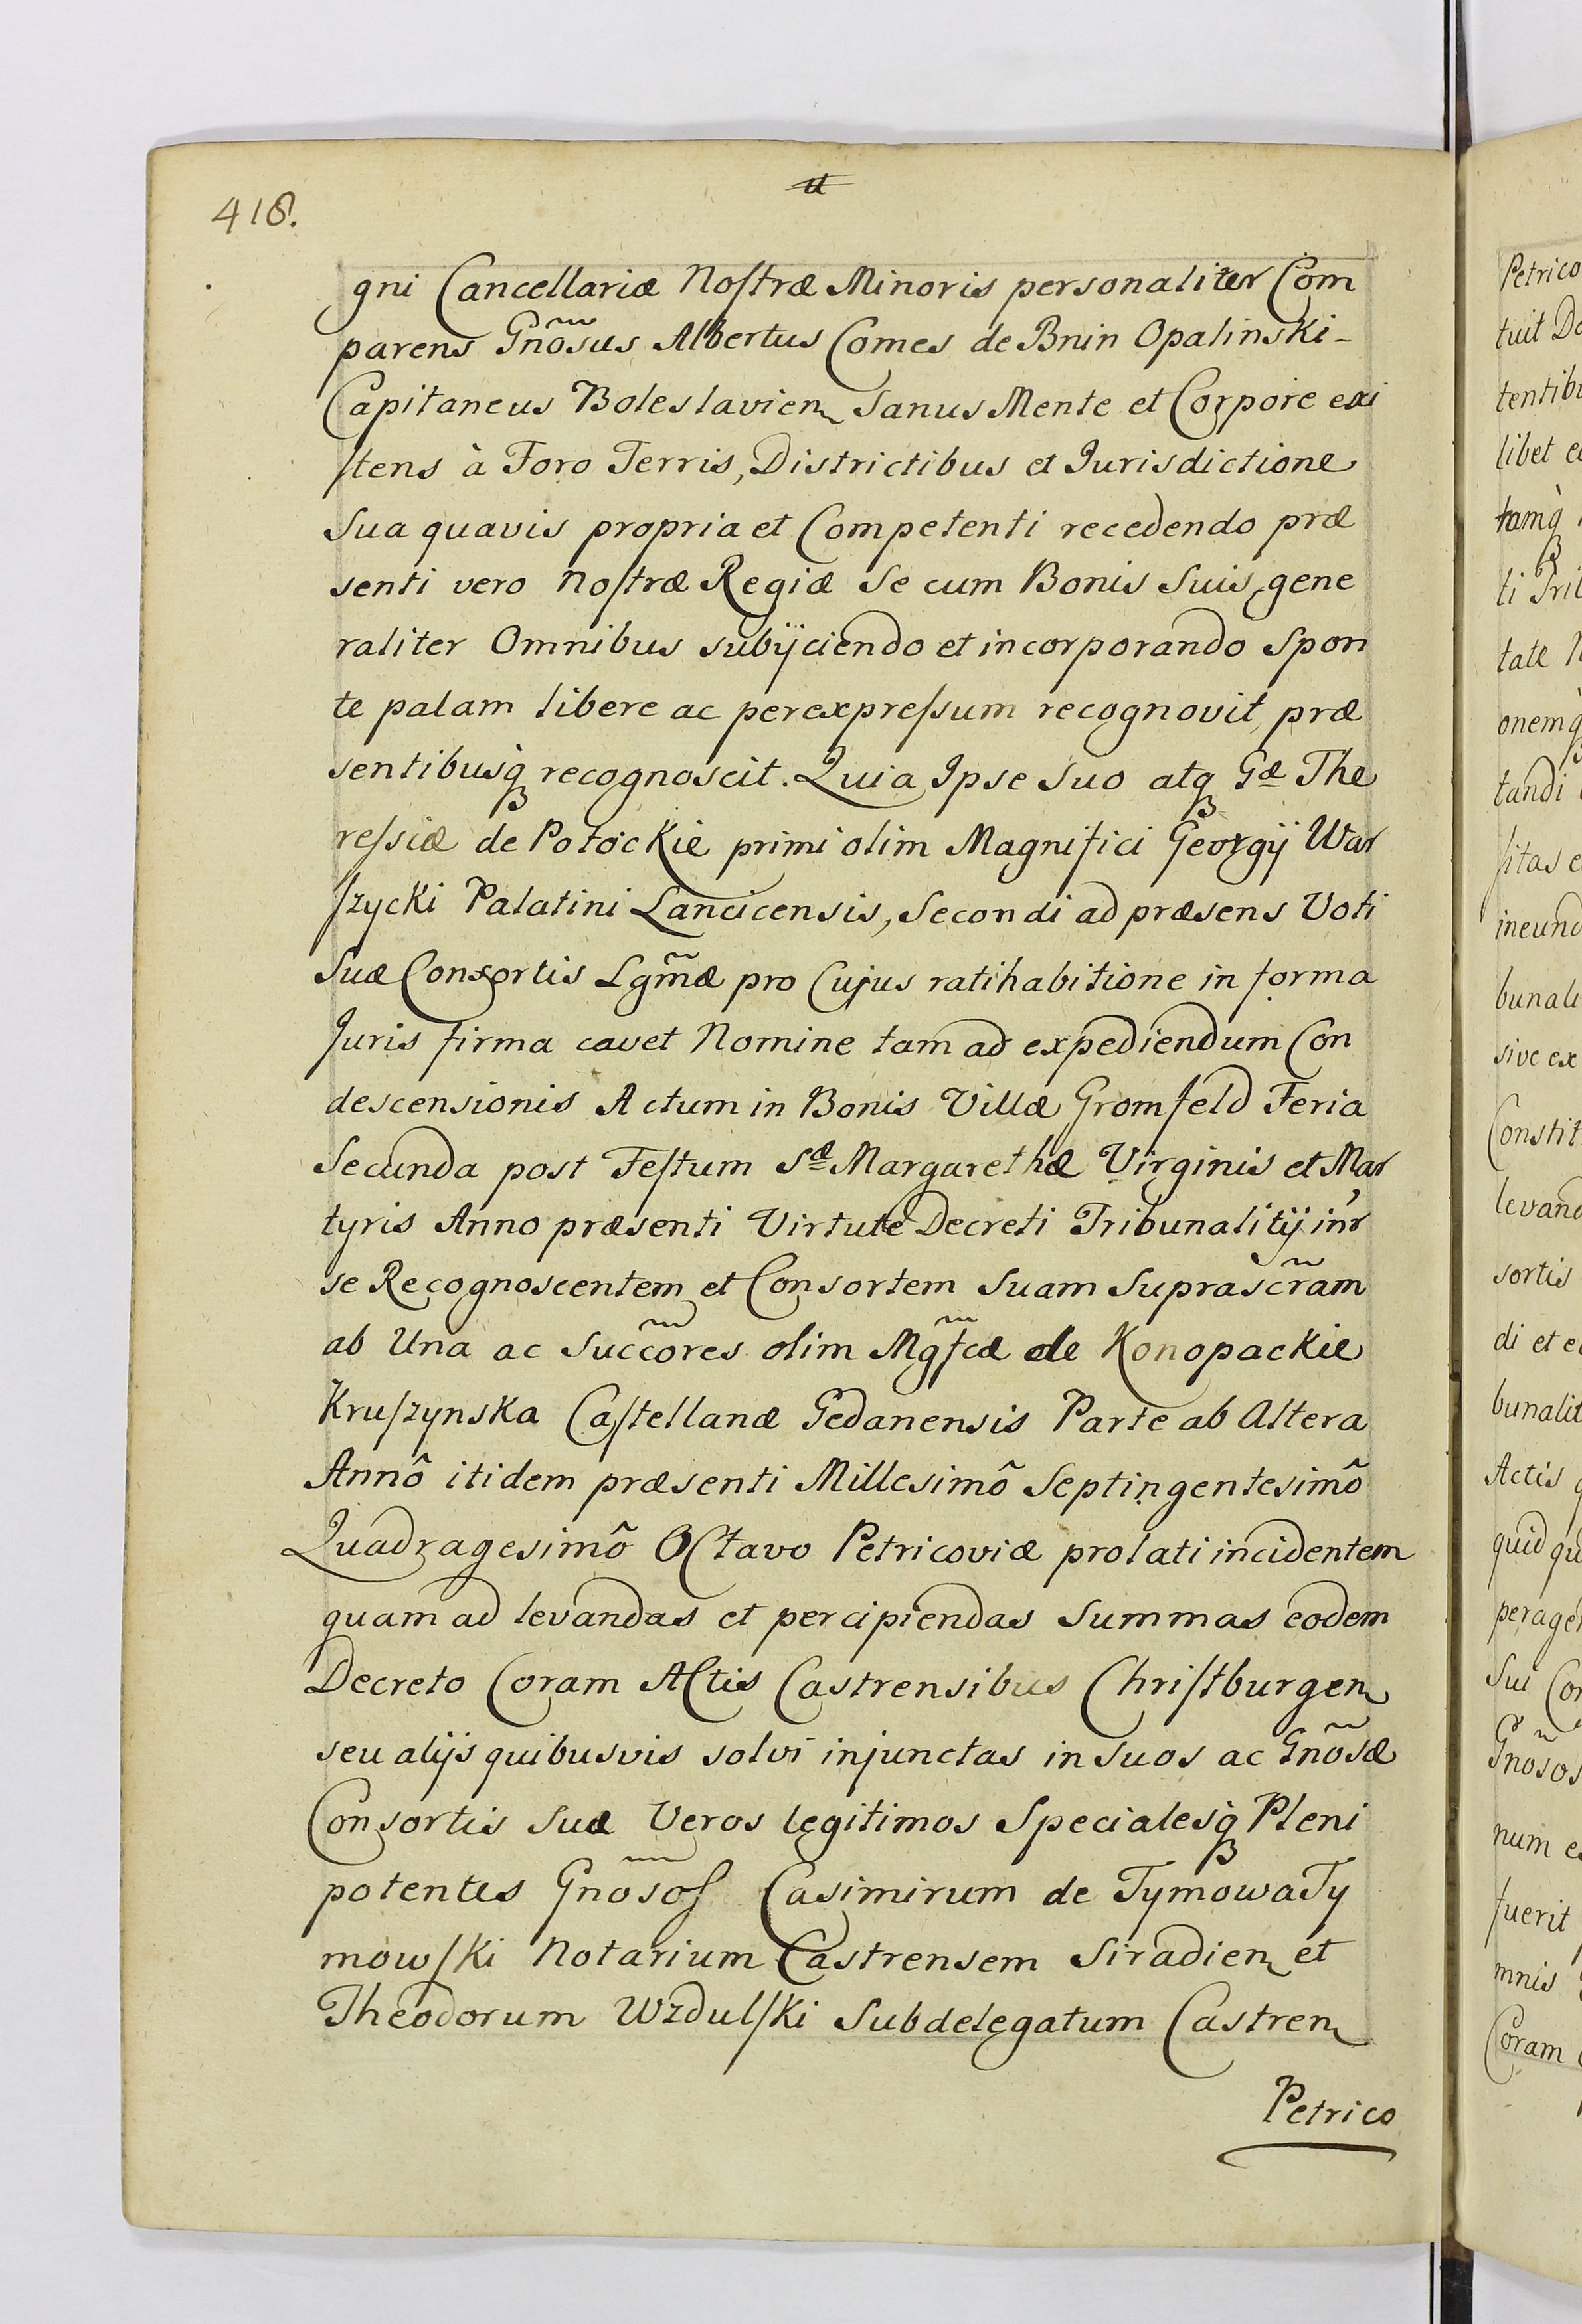 418.
gni Cancellariæ Noſtræ Minoris personaliter Com
parens Gnõsus Albertus Comes de Bnin Opalinski-
Capitaneus Boleslavien Sanus Mente et Corpore exi
ſtens à Foro Terris, Districtibus et Jurisdictione
Sua quavis propria et Competenti recedendo præ
senti vero Noſtræ Regiæ Se cum Bonis Suis gene
raliter Omnibus subijciendo et incorporando Spon
te palam libere ac perexpreſsum recognovit præ
sentibusq́ recognoscit. Quia Ipse Suo atq Gæ The
reſsiæ de Potockie primi olim Magnifici Georgij War
ſzycki Palatini Lancicensis, Secondi ad præsens Voti
Suæ Consortis Lgm̃æ pro Cujus ratihabitione in forma
Juris firma cavet Nomine tam ad expediendum Con
descensionis Actum in Bonis Villæ Gromfeld Feria
Secunda post Feſtum Sæ Margarethæ Virginis et Mar
tyris Anno præsenti Virtute Decreti Tribunalitij inr̃
se Recognoscentem et Consortem Suam Suprascr̃am
ab Una ac Succõres olim Mgf̃cæ de Konopackie
Kruſzynska Caſtellanæ Gedanensis Parte ab Altera
Annô itidem præsenti Millesimô Septingentesimô
Quadragesimô Octavo Petricoviæ prolati incidentem
quam ad levandas et percipiendas Summas eodem
Decreto Coram Actis Castrensibus Chriſtburgen
seu alijs quibusvis solvi injunctas in suos ac Gnõsæ
Consortis Suæ Veros legitimos Specialesq́ Pleni
potentes Gnõsos Casimirum de Tymowa Ty
mowſki Notarium Castrensem Siradien et
Theodorum Wzdulſki Subdelegatum Castren
Petrico
Petrico
tuit
libet
tate
tandi
ineund
bunali
sive ex
Constit
levand
sortis
di et
bunalit
Actis
quid
perage
Sui
Gnõsos
num
fuerit
mnis
Coram